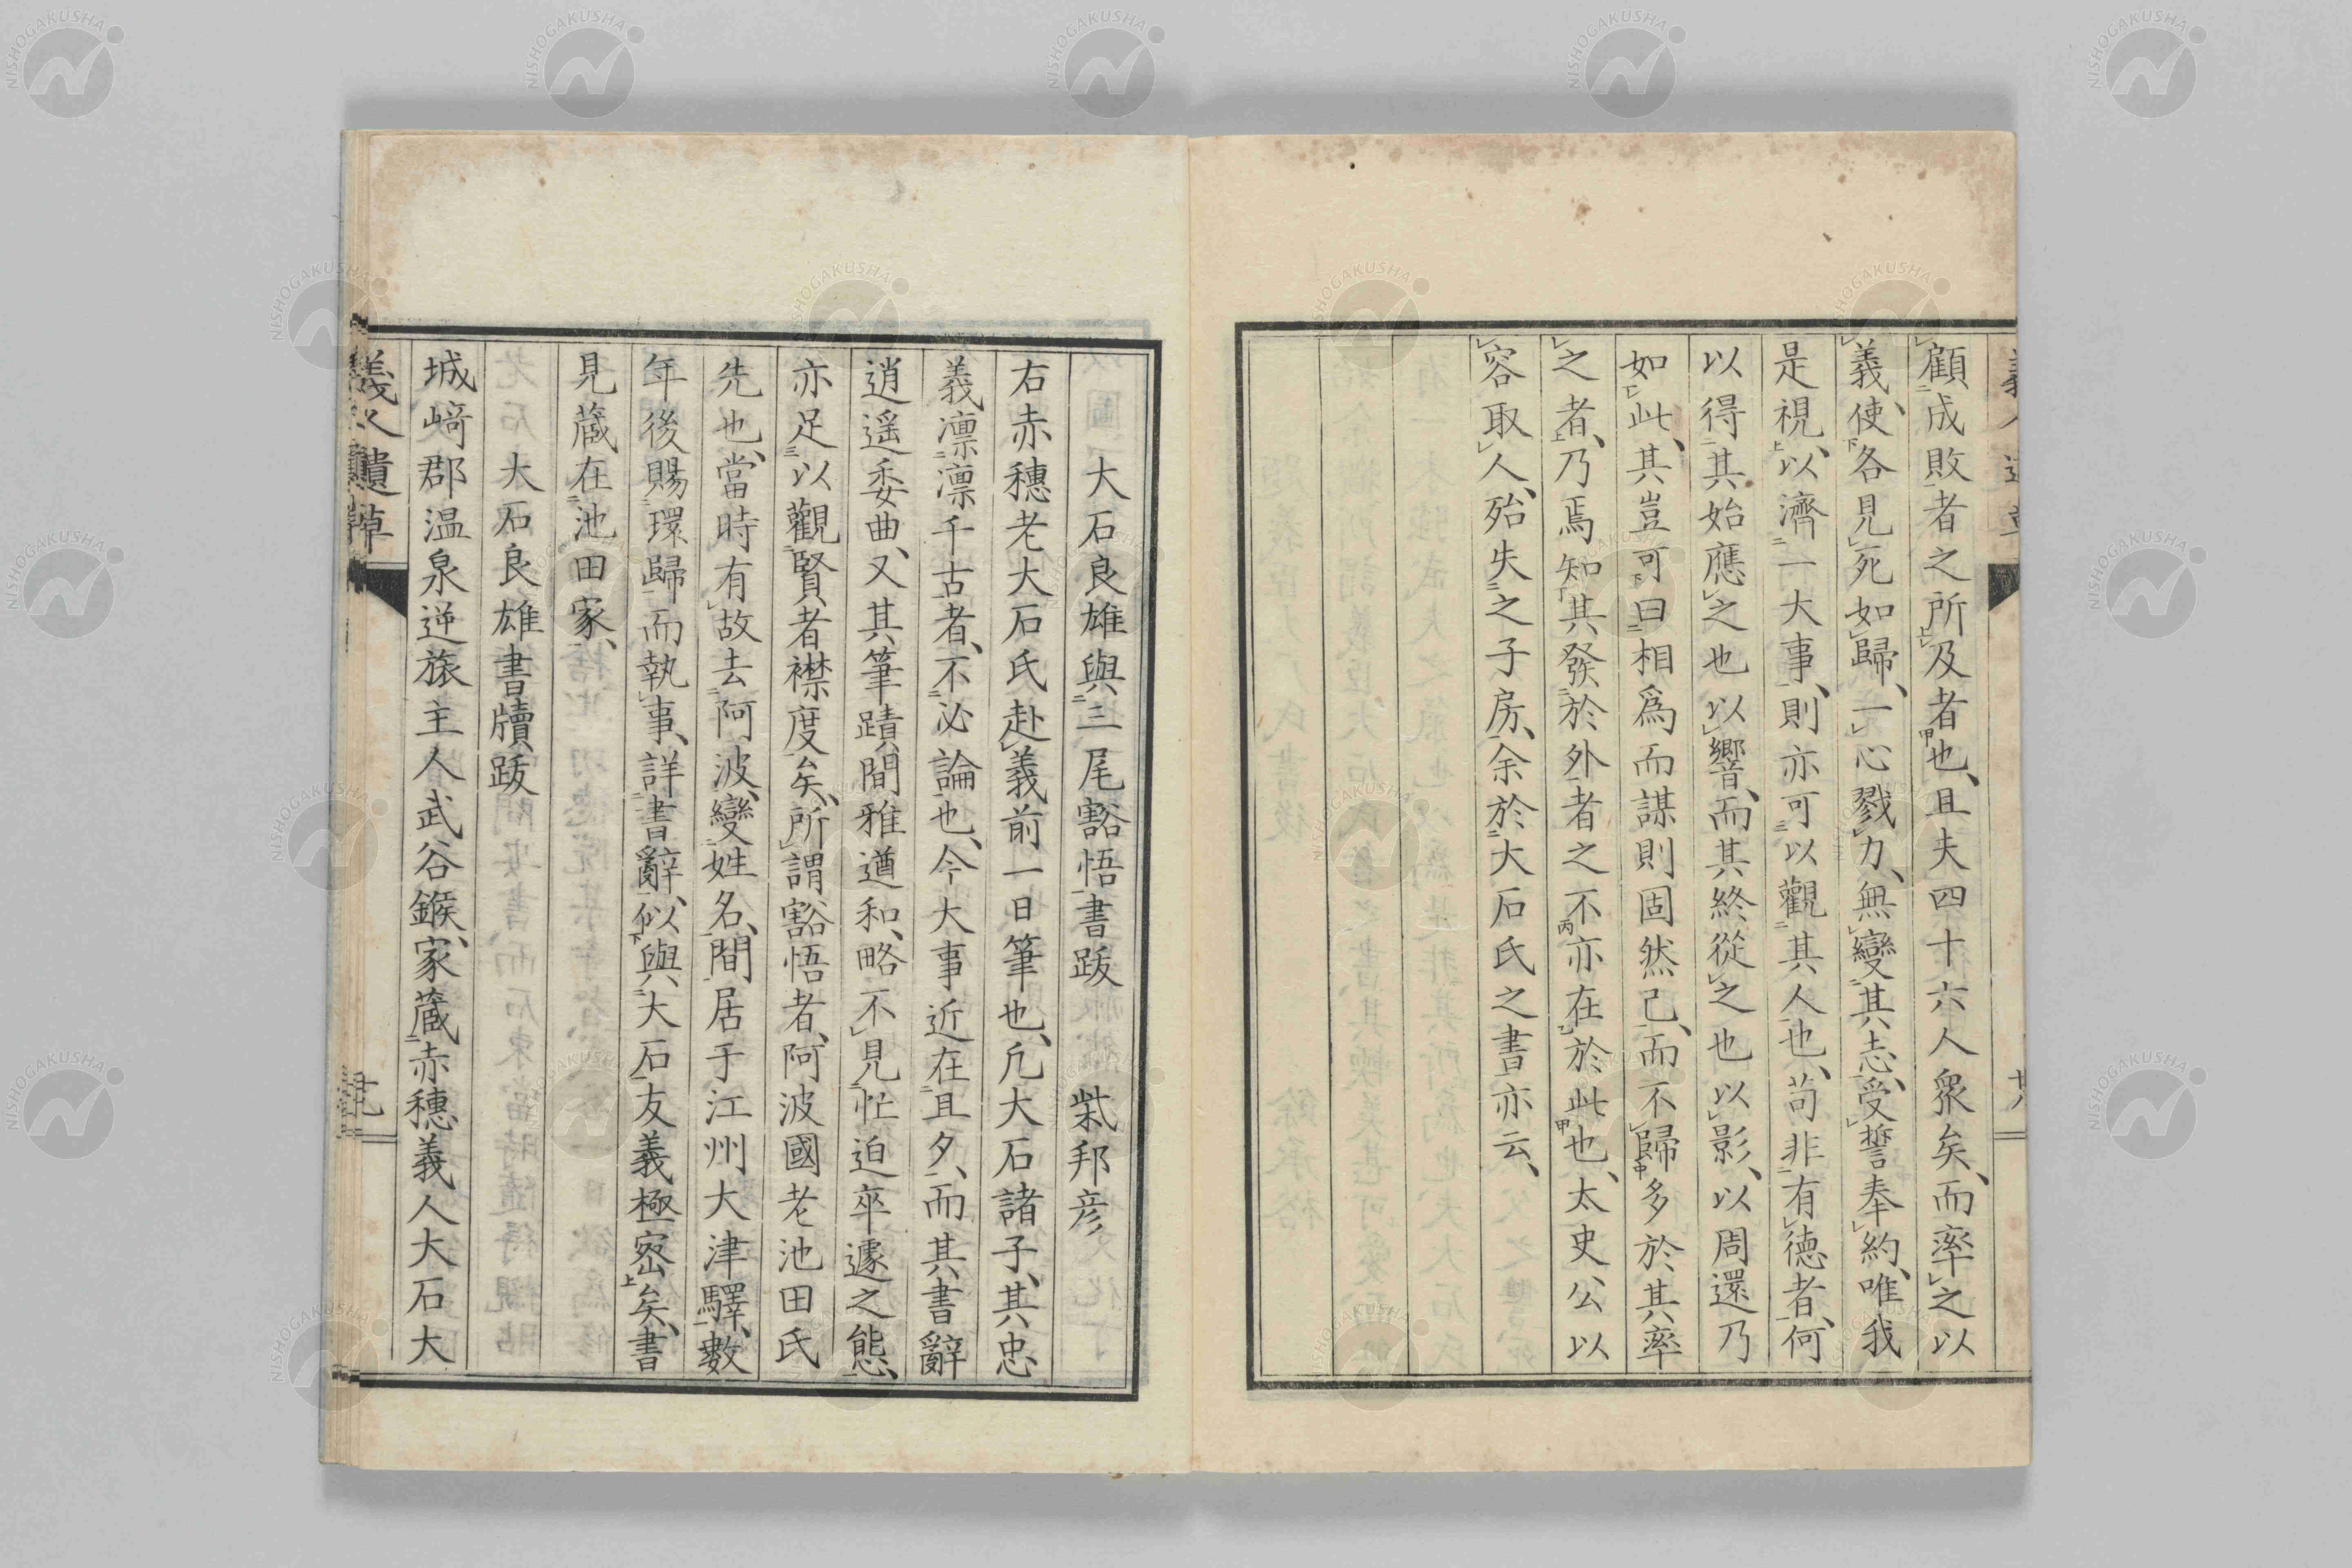 顧成敗者之所及者也、且夫四十六人衆矣、而率之以
義、使各見死如歸、一心戮力、無變其志、受誓奉約、唯我
是視、以濟一大事、則亦可以觀其人也、苟非有德者、何
以得其始應之也以響、而其終從之也以影、以周還乃
如此、其豈可曰相爲而謀則固然已、而不歸多於其率
之者、乃焉知其發於外者之不亦在於此也、太史公以
容取人、殆失之子房、余於大石氏之書亦云、
大石良雄與三尾豁悟書跋 柴邦彦
右赤穗老大石氏赴義前一日筆也、凡大石諸子、其忠
義凛凛千古者、不必論也、今大事近在且夕、而其書辭
逍遥委曲、又其筆蹟閒雅遒和、略不見忙迫卒遽之態、
亦足以觀賢者襟度矣、所謂豁悟者、阿波國老池田氏
先也、當時有故去阿波、變姓名、間居于江州大津驛、數
年後賜環歸而執事、詳書辭、似與大石友義極密矣、書
見藏在池田家、
大石良雄書牘跋
城﨑郡温泉逆旅主人武谷鍭、家藏赤穗義人大石大
義人遺草
NISHOGAKUSHA